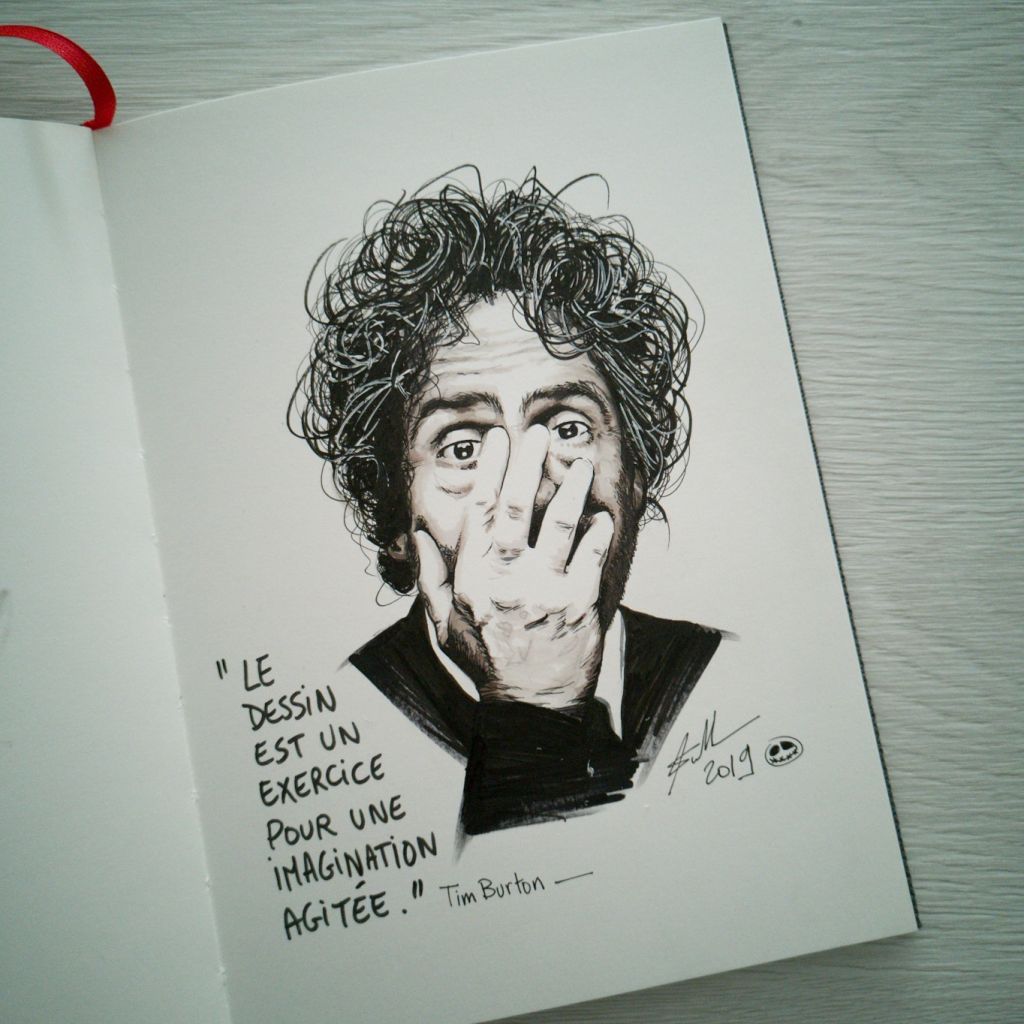 " LE
DESSiN
EST UN
EXERCiCE
POUR UNE
iMAGiNATiON
AGiTÉE . "
Tim Burton —
2019